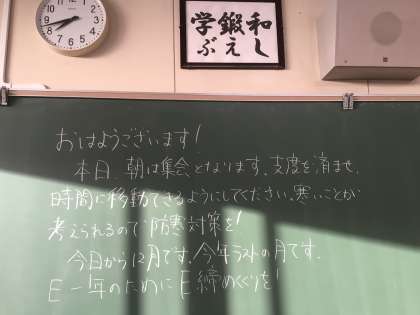 和し
鍛え
学ぶ
おはようございます!
本日、朝は集会となります。支度を済ませ、
時間に移動できるようにしてください。寒いことが
考えられるので防寒対策を!
今日から12月です。今年ラストの月です。
E一年のためにE締めくくりを!